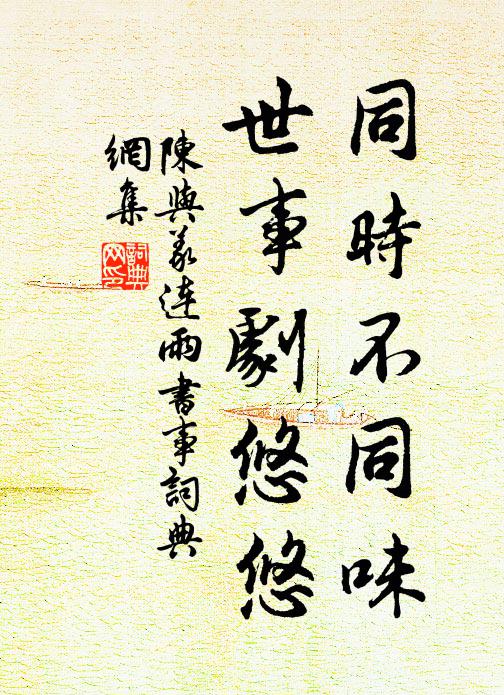 同時不同味
世事劇悠悠
陳與義連雨書事詞典
網集
詞典
网印